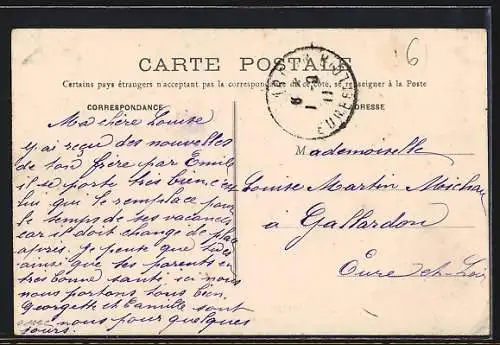 6
CARTE POSTALE
Certains pays étrangers n'acceptant pas la correspondance de ce côté, se renseigner à la Poste
CORRESPONDANCE
ADRESSE
Ma chère Louise
j'ai reçu des nouvelles
de ton frère par Emile
il se porte très bien c'est
lui qui le remplace pour
le temps de ses vacances
car il doit change de
après. je pense que
ainsi que tes parents en
très bonne santé ici nous
nous portons tous bien.
Georgette et Camille sont
avec nous pour quelques
jours.
Mademoiselle
Louise Martin
à Gallardon
Eure-et-Loir
EURE